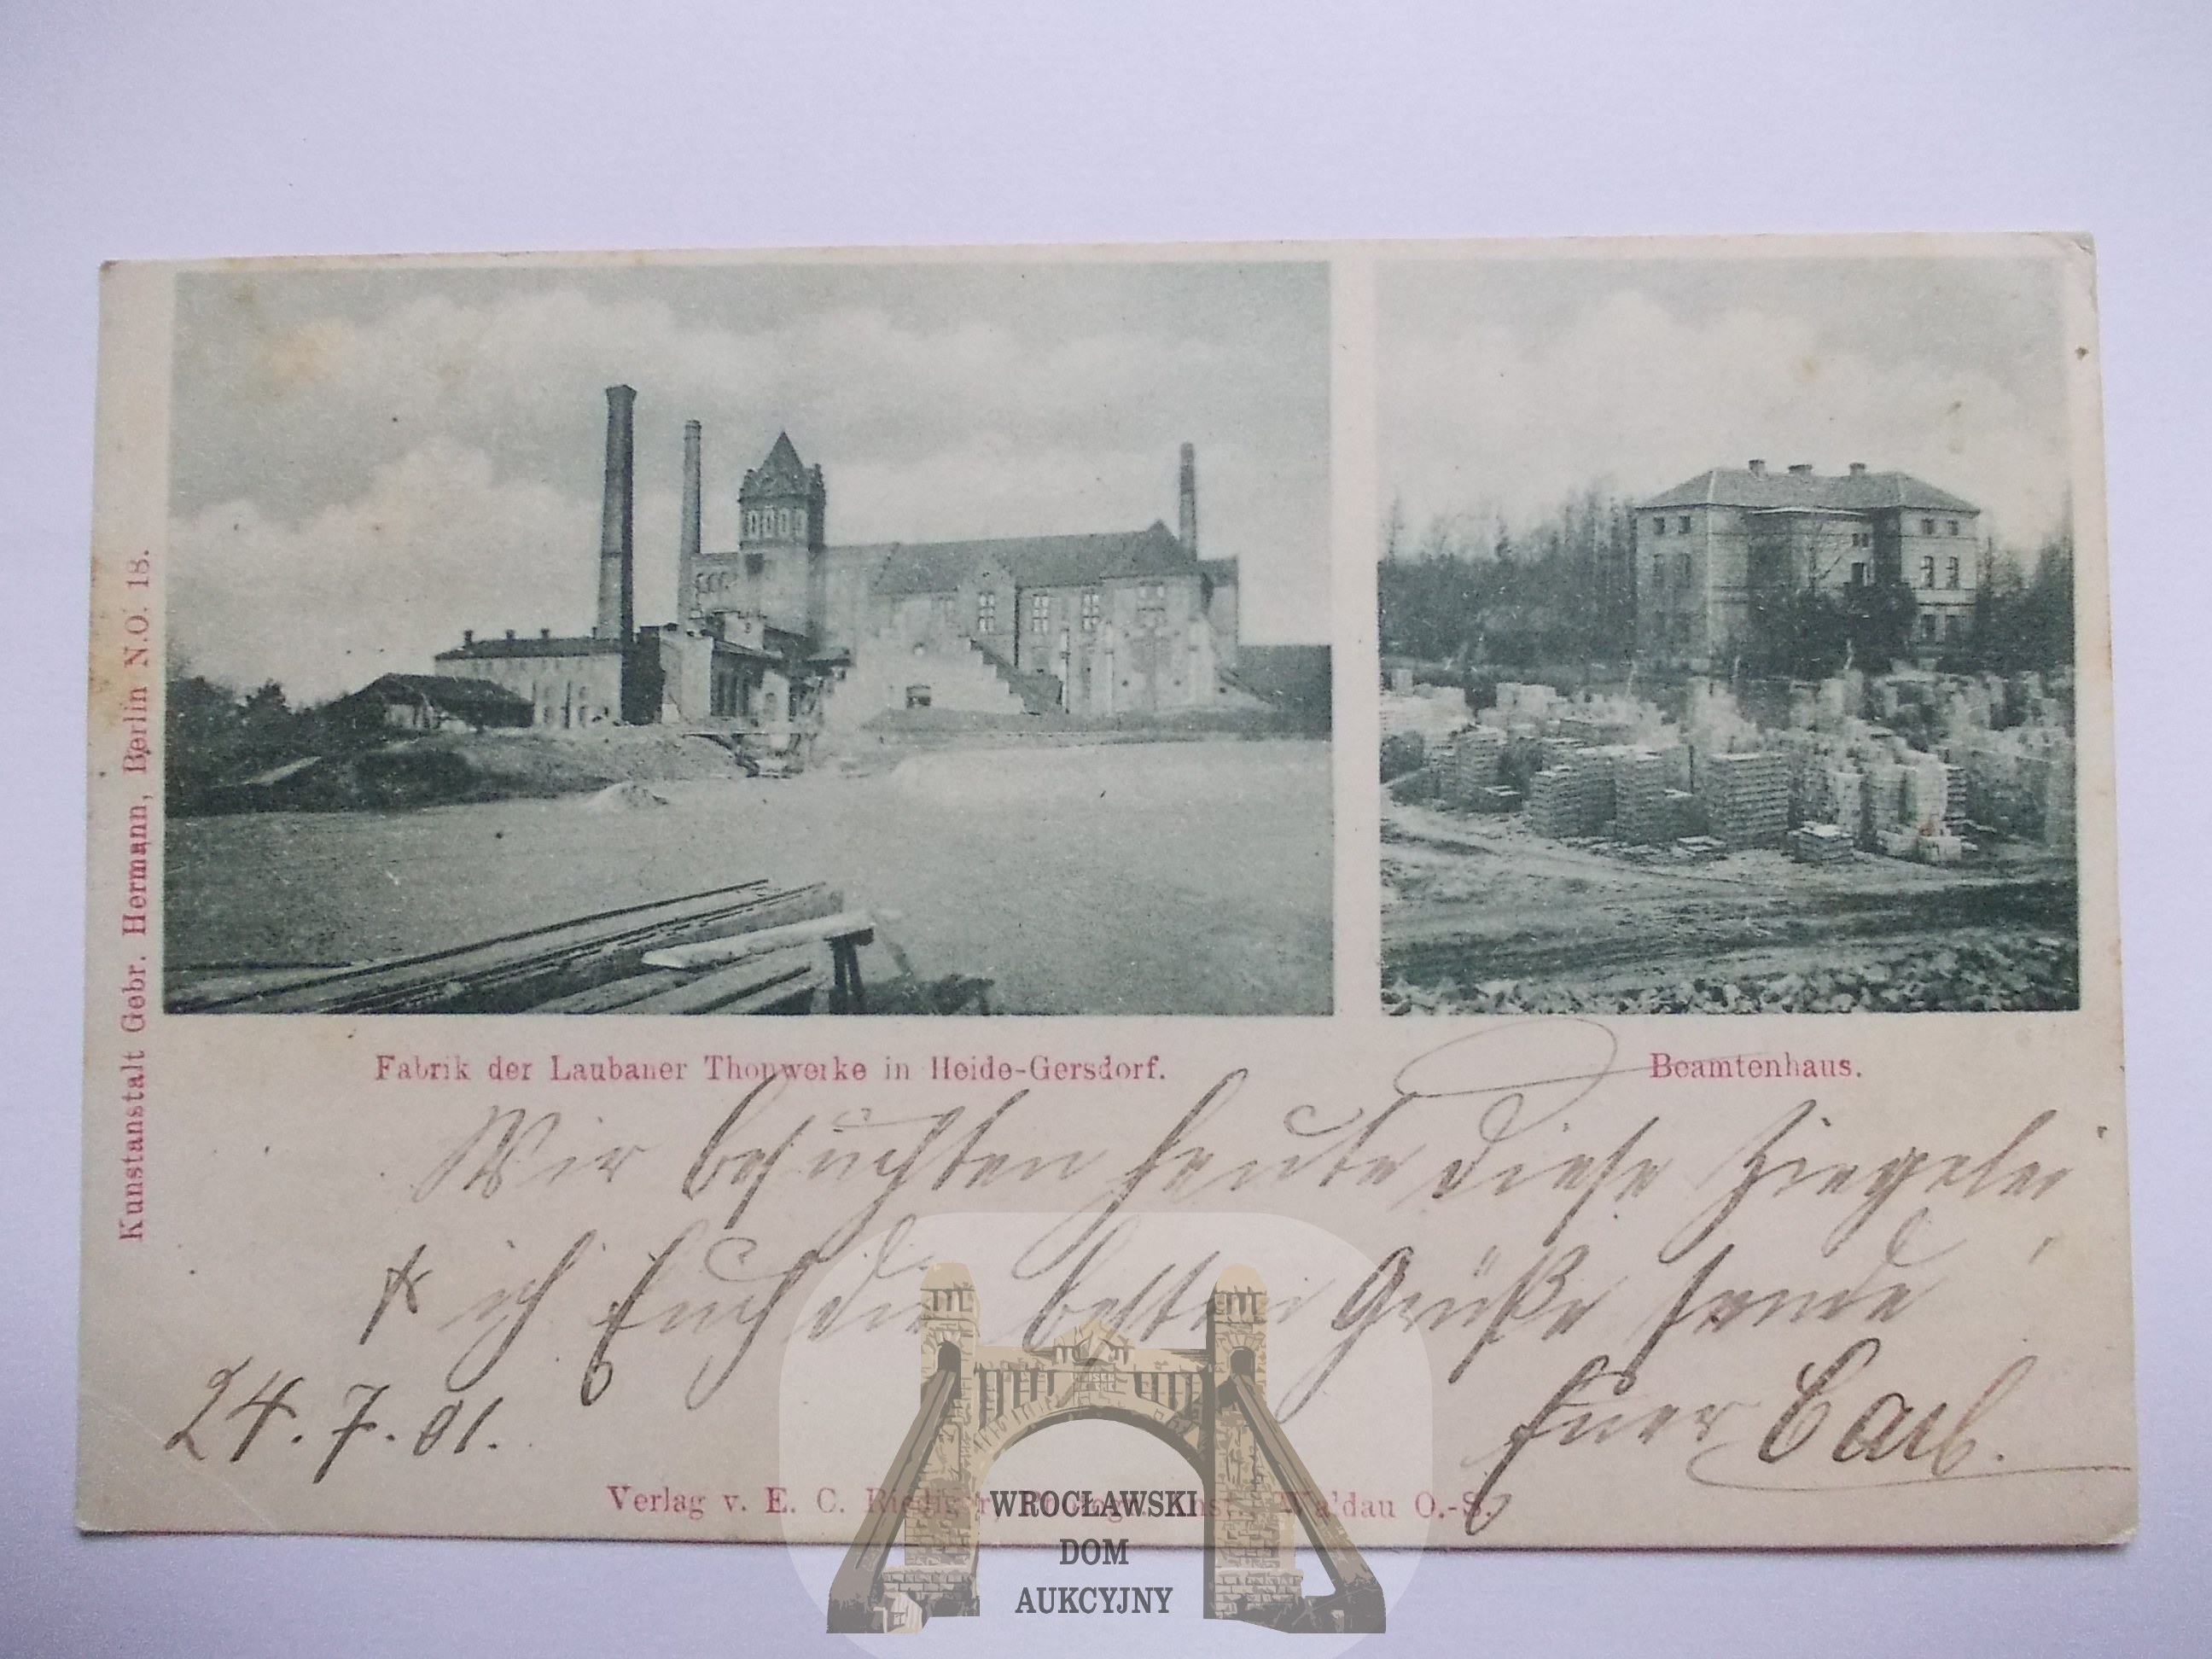 Kunstanstalt Gebr. Hermann, Berlin N.O. 18.
Fabrik der Laubaner Thonwerke in Heide-Gersdorf.
Beamtenhaus.
Wir besuchten heute diese Ziegelei
ich Euch die besten Grüße sende
24.7.01.
Euer
Verlag v. E. C. Waldau O.-S.
WROCŁAWSKI
DOM
AUKCYJNY